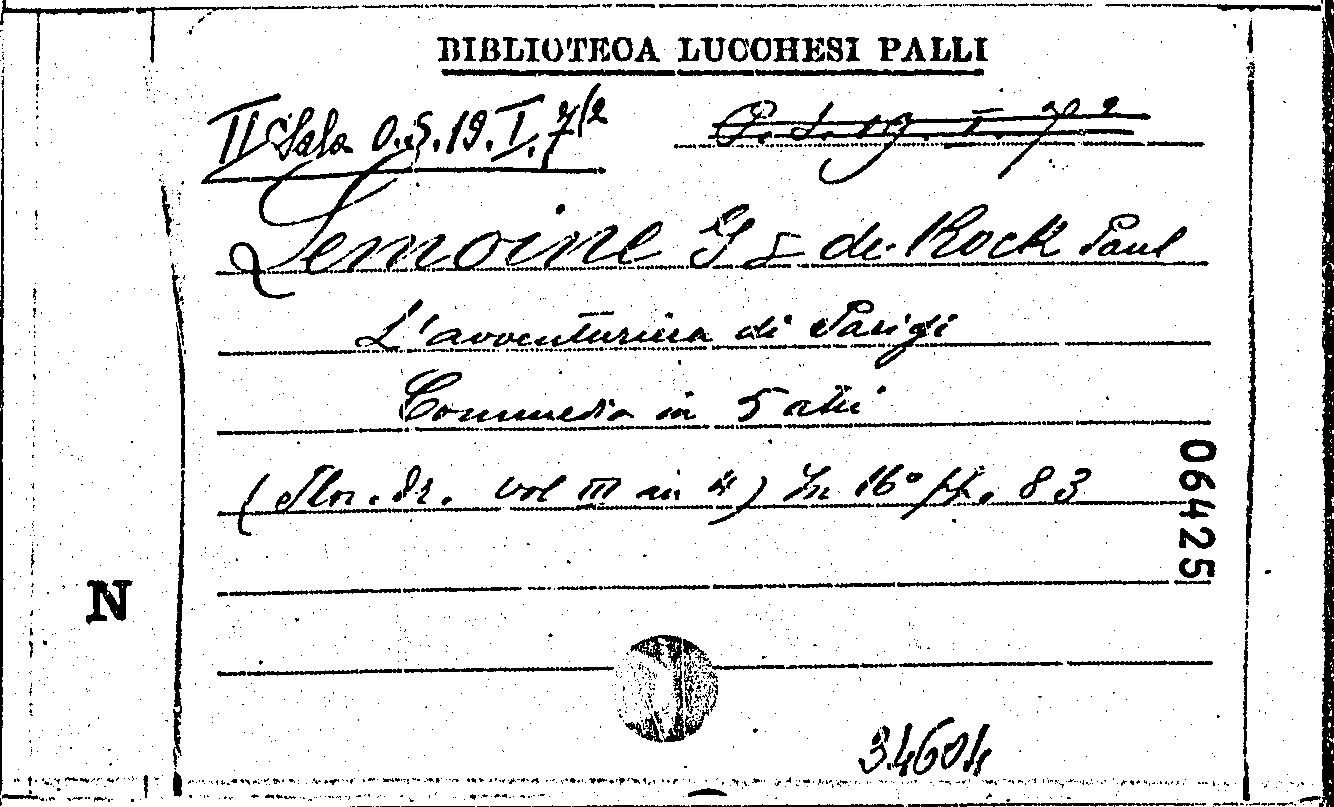 BIBLIOTECA LUCCHESI PALLI
II Sala O.S.19.I.7/2
P. S. 19. I. 7 2
Lemoine G & de Kock Paul
L'avventuriera di Parigi
Commedia in 5 atti
(Flor. dr. vol III in 4) In 16° pp. 83
06425
N
34604